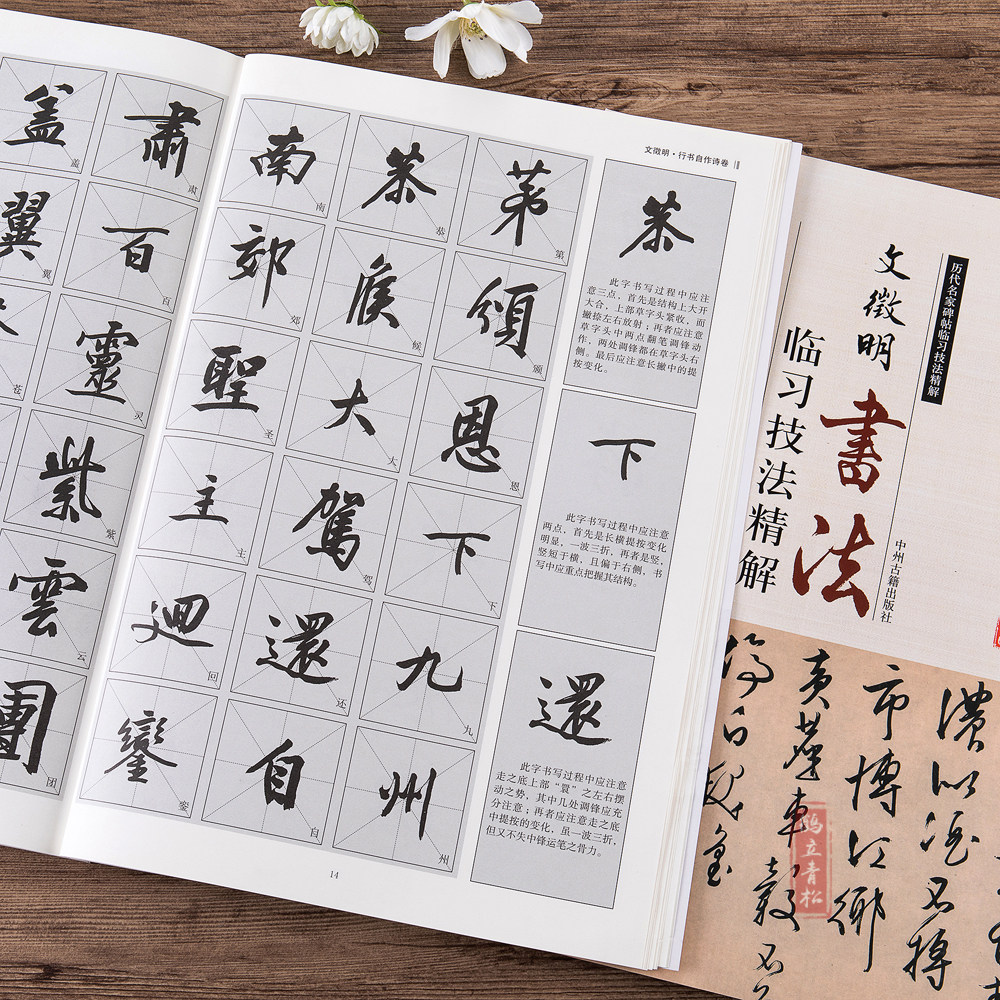 文徵明·行书自作诗卷
第 頒 恩 下 九 州
第 颁 恩 下 九 州
恭 候 大 駕 還 自
恭 候 大 驾 还 自
南 郊 聖 主 迴 鑾
南 郊 圣 主 回 銮
肅 百 靈 紫 雲 團
肃 百 灵 紫 云 团
蓋 翼
盖 翼 苍
恭
此字书写过程中应注
意三点，首先是结构上大开
大合，上部草字头紧收，而
撇捺左右放射；再者应注意
草字头中两点翻笔调锋动
作，两处调锋都在草字头右
侧。最后应注意长撇中的提
按变化。
下
此字书写过程中应注意
两点，首先是长横提按变化
明显，一波三折，再者是竖，
竖短于横，且偏于右侧，书
写中应重点把握其结构。
還
此字书写过程中应注意
走之底上部“睘”之左右摆
动之势，其中几处调锋应充
分注意；再者应注意走之底
中提按的变化，虽一波三折，
但又不失中锋运笔之骨力。
14
历代名家碑帖临习技法精解
文徵明
書法
临习技法精解
中州古籍出版社
市博江鄉
鸣立青松